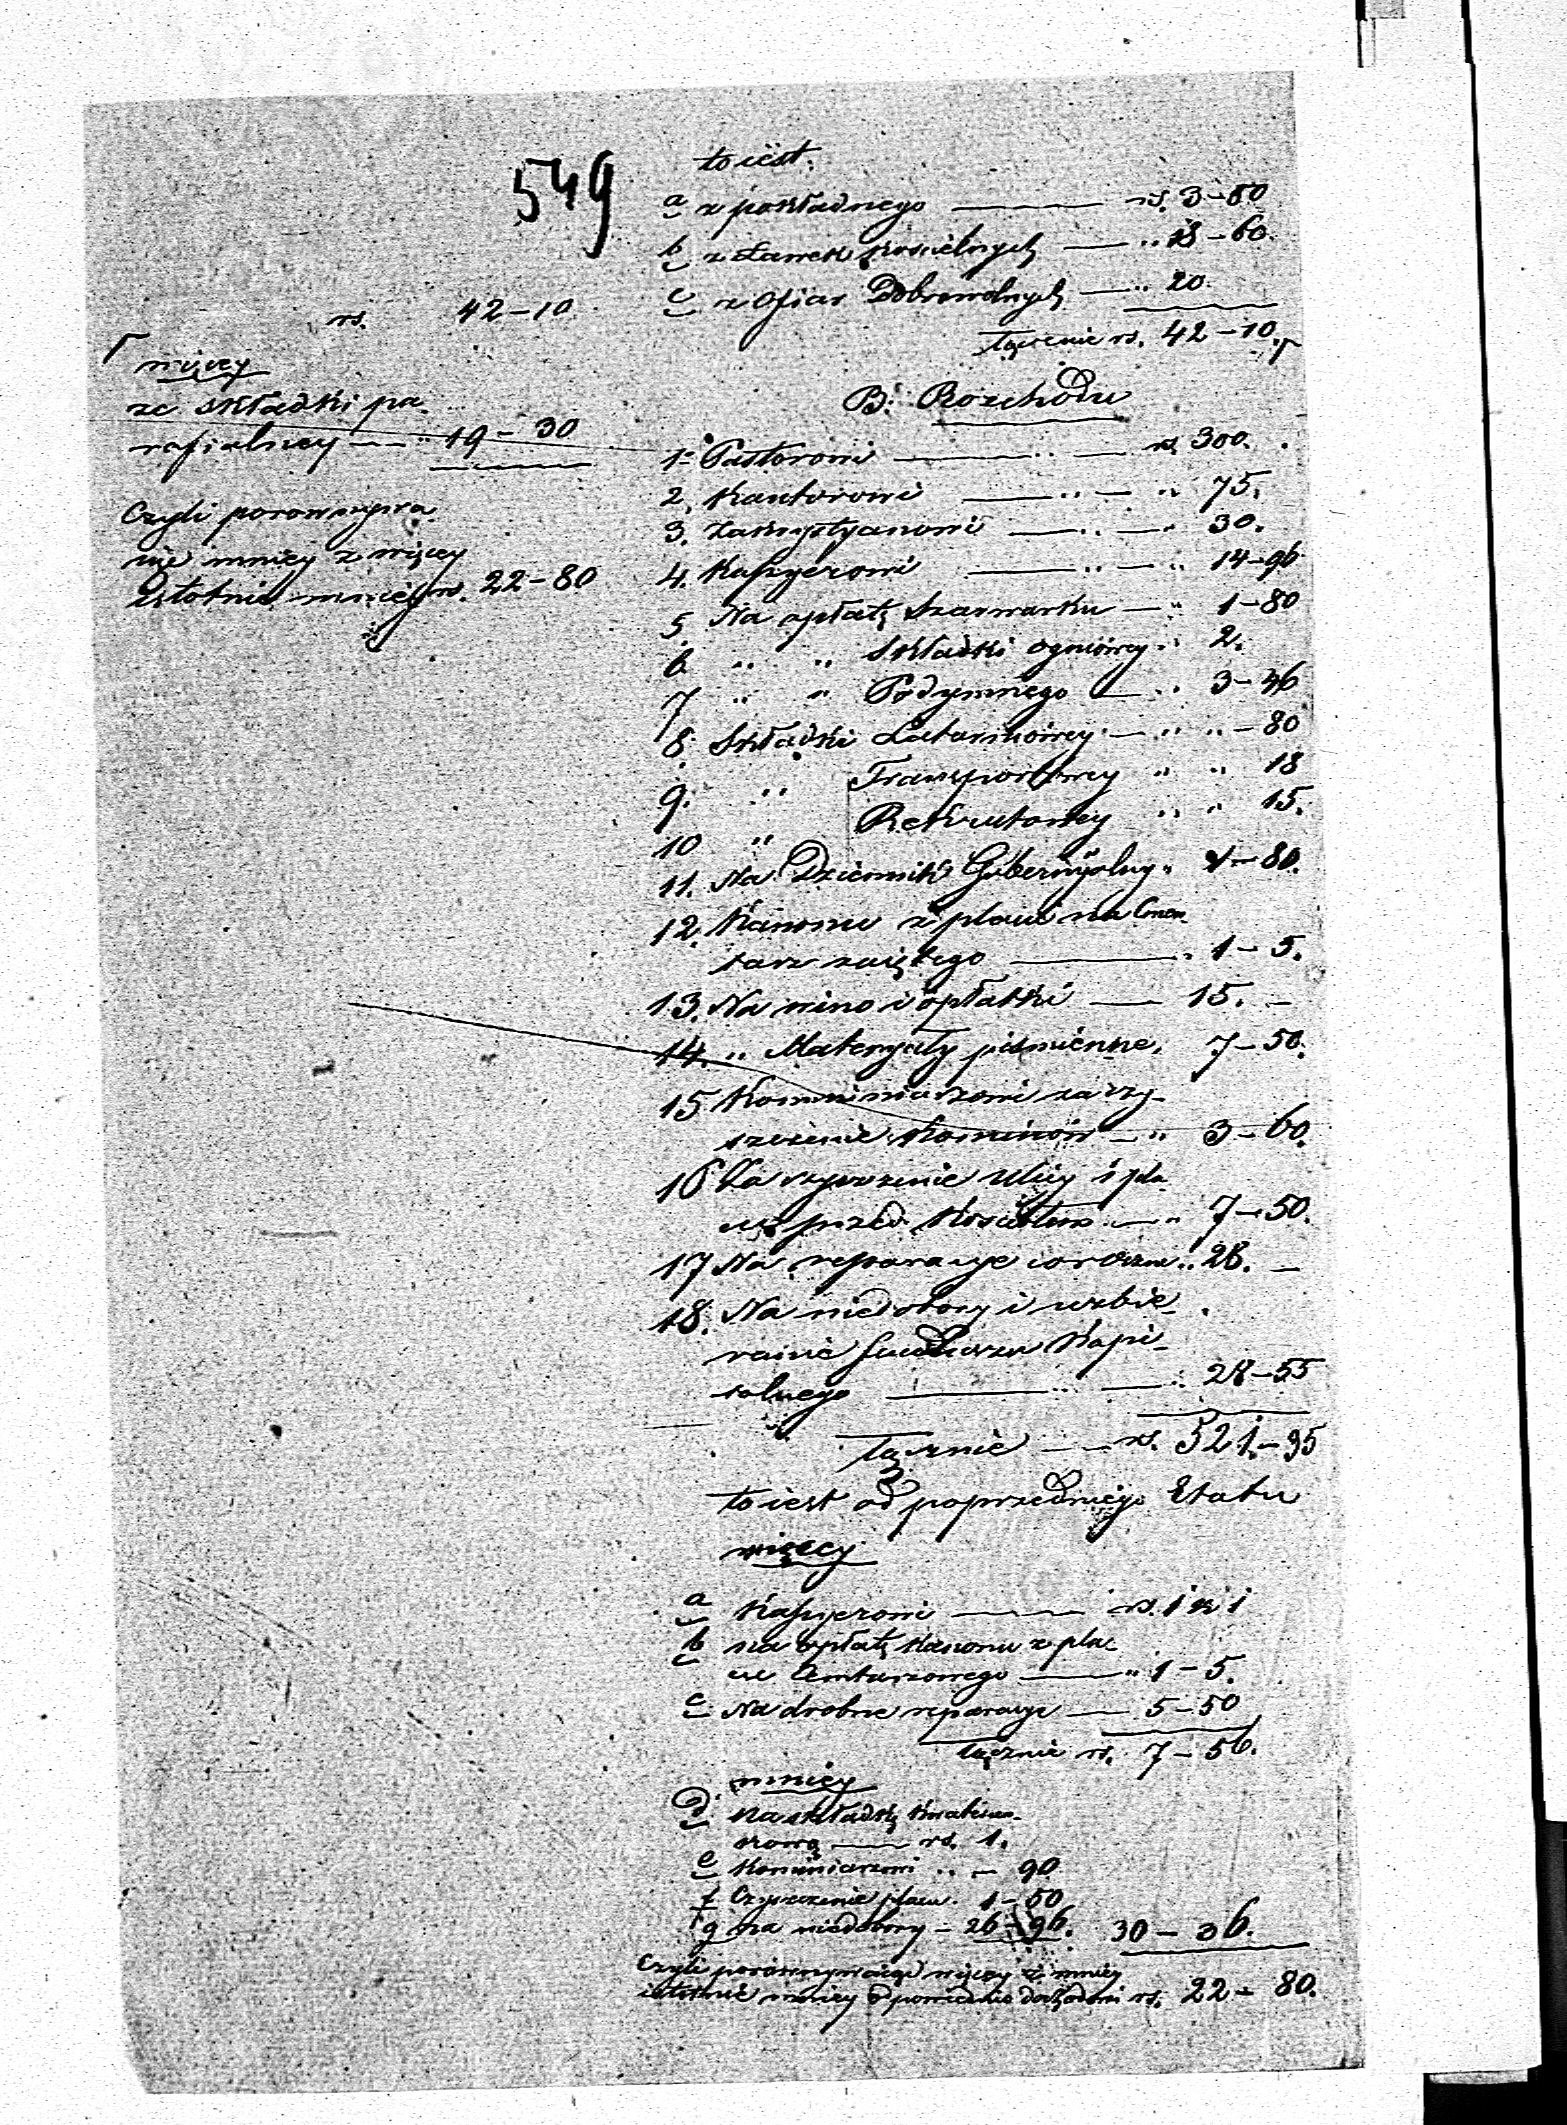 549
to iest.
a z pokładnego — rs. 3-50
b z Ławek kościelnych — " 18-60.
c z ofiar Dobrowolnych — " 20.
Łącznie rs. 42-10.
rs. 42-10
więcey
ze składki pa-
rafialney — " 19-30
Czyli porownywa-
iąc mniey z więcey
istotnie mniey rs. 22-80
B. Rozchodu
1. Pastorowi — rs 300.
2. Kantorowi — " 75.
3. Zakrystyanowi — " 30.
4. Kassyerowi — " 14-96
5 Na opłatę Szarwarku — " 1-80
6 " " Składki ogniowey " 2.
7 " " Podymnego — " 3-46
8. Składki Latarniowey — " " -80
9. " Transportowey " " 18
10 " Rekrutowey " " 15.
11. Na Dziennik Gubernyalny " 1-80.
12. Kanonu z placu na Cmen-
tarz zaiętego — " 1-5.
13. Na wino i opłatki — 15. -
14. " Materyały piśmienne. 7-50.
15 Kominiarzowi za czy-
szczenie Kominów — " 3-60.
16 Za czyszczenie Ulicy i pla-
cu przed Kościołem — " 7-50.
17 Na reparacye coroczne " 28. -
18. Na niedobory i uzbie-
ranie funduszu Kapi-
talnego — " 28-55
Łącznie — rs. 521.-95
to iest od poprzedniego Etatu
więcey
a Kassyerowi — rs. 1 k 1
b na opłatę Kanonu z pla-
cu Cmentarzowego — " 1-5.
c Na drobne reparacye — 5-50
Łącznie rs. 7-56.
mniey
d. na składkę kwaterun-
kową — rs. 1.
e Kominiarzowi " - 90
f Czyszczenie placu. 1-50
g na niedobory - 26-96. 30-36.
Czyli porównywaiąc więcey z mniey
istotnie mniey odpowiednio dochodowi rs. 22-80.